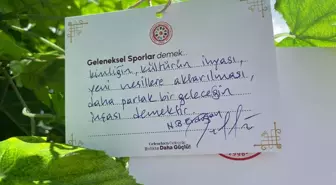 Geleneksel Sporlar demek
kimliğin, kültürün ihyası,
yeni nesillere aktarılması,
daha parlak bir geleceğin
inşası demektir.
N.B Erdoğan
Birlikte Daha Güçlü!